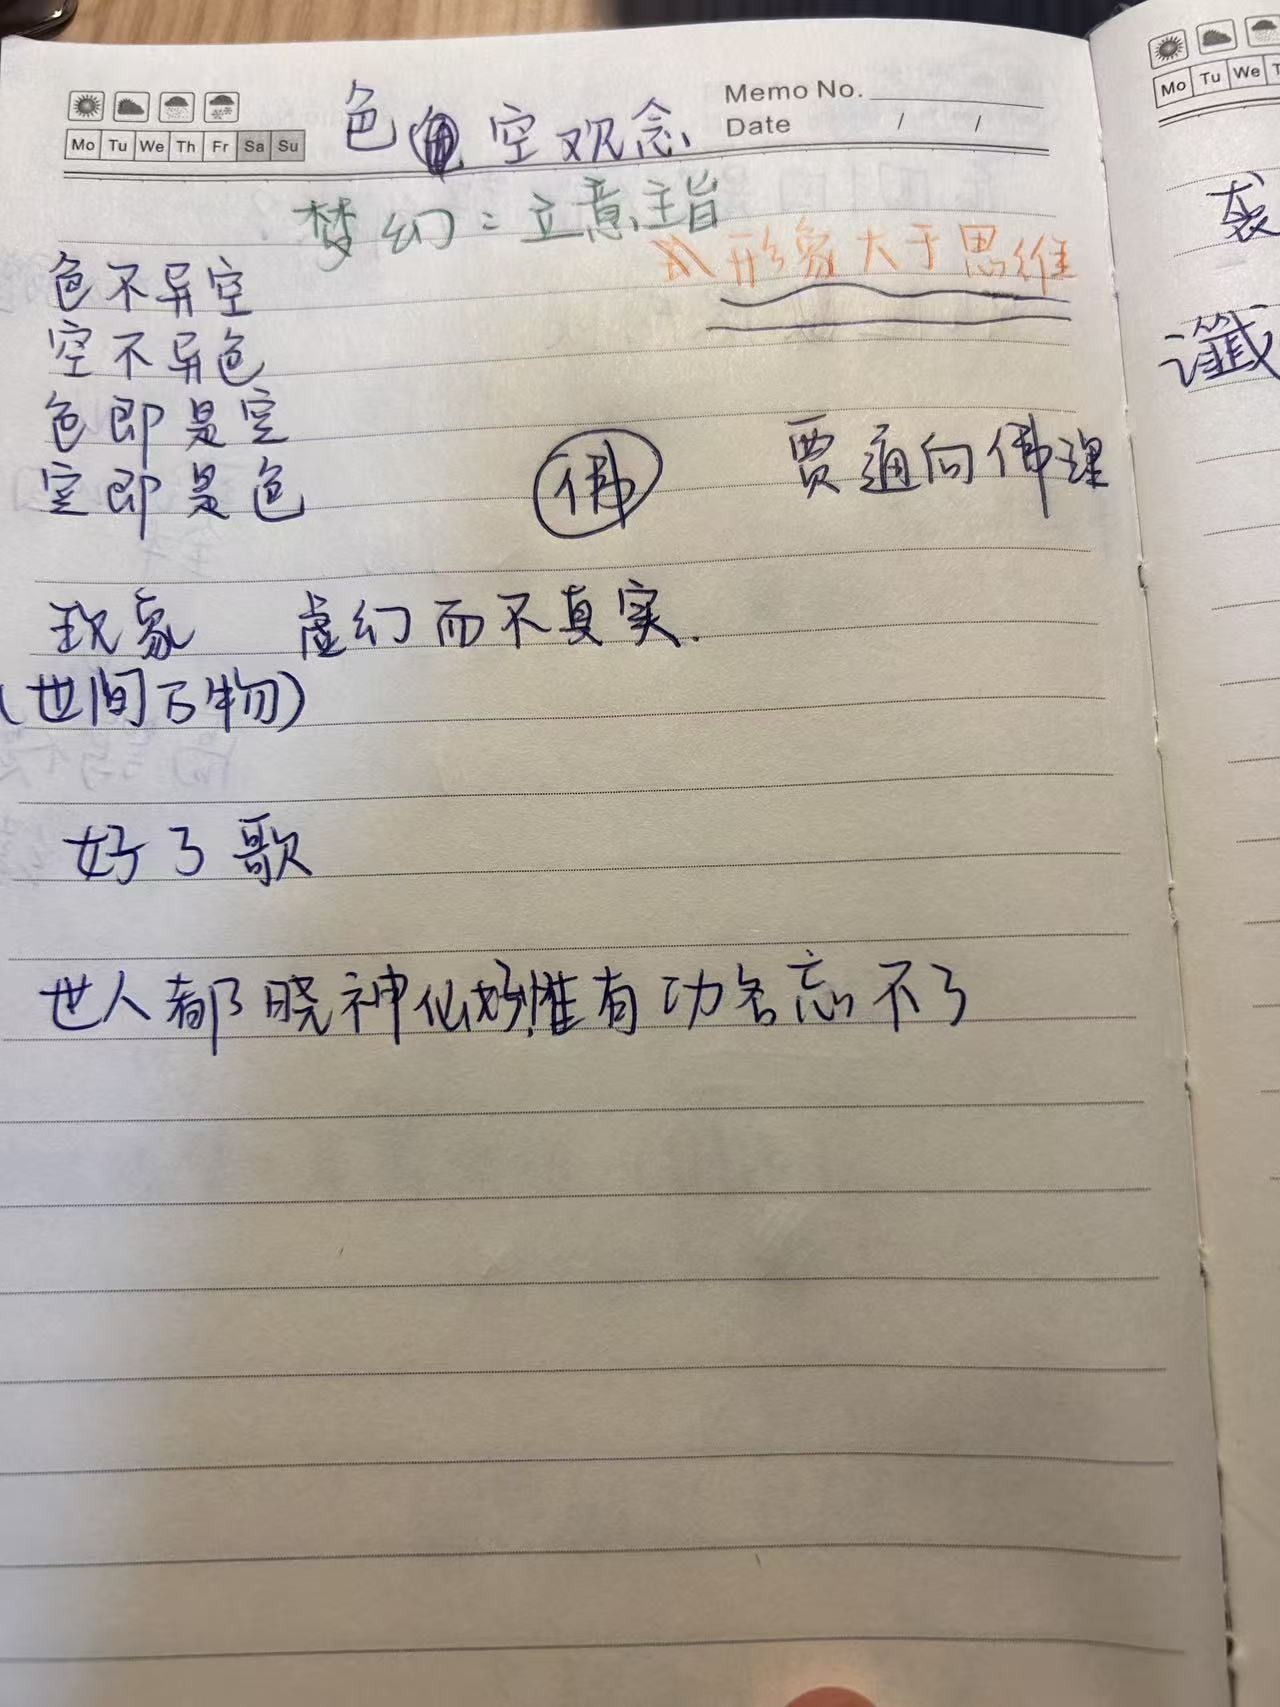 Memo No.
Date / /
Mo Tu We Th Fr Sa Su
色 空观念
梦幻:立意主旨
形象大于思维
色不异空
空不异色
色即是空
空即是色
佛
贾通向佛理
现象 虚幻而不真实.
(世间万物)
好了歌
世人都晓神仙好,惟有功名忘不了
Mo Tu We T
袭
谶